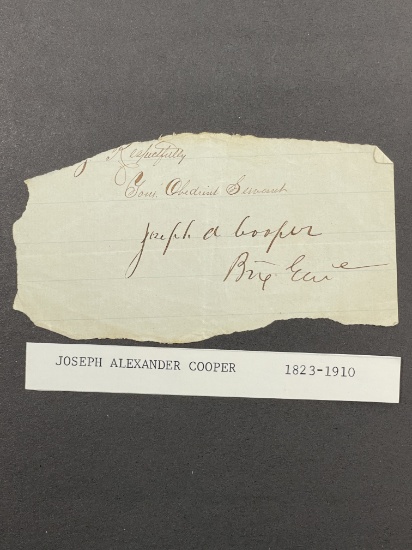 Respectfully
Your Obedient Servant
Joseph A Cooper
Brig Genl
JOSEPH ALEXANDER COOPER 1823-1910